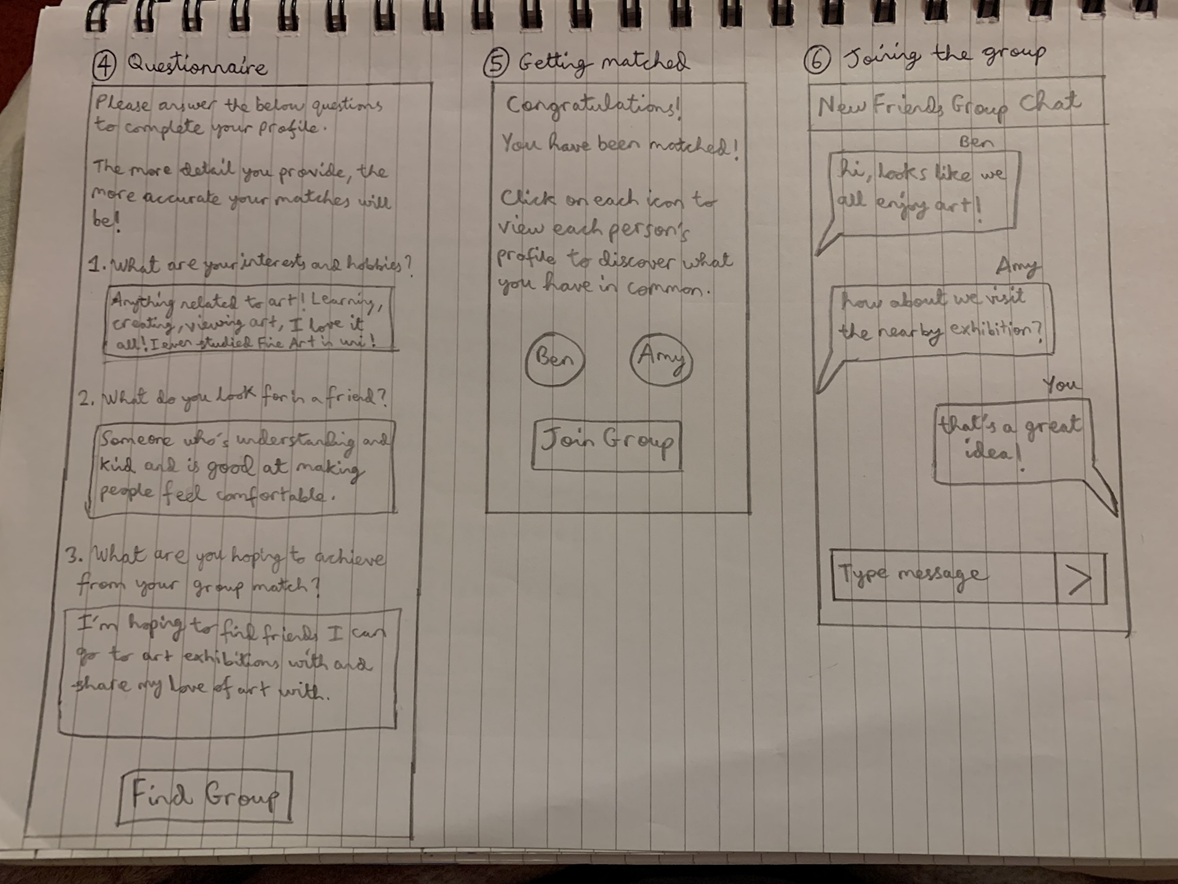 ④ Questionnaire
Please answer the below questions
to complete your profile.
The more detail you provide, the
more accurate your matches will
be!
1. What are your interests and hobbies?
Anything related to art! Learning,
creating, viewing art, I love it
all! I even studied Fine Art in uni!
2. What do you look for in a friend?
Someone who's understanding and
kind and is good at making
people feel comfortable.
3. What are you hoping to achieve
from your group match?
I'm hoping to find friends I can
go to art exhibitions with and
share my love of art with.
Find Group
⑤ Getting matched
Congratulations!
You have been matched!
Click on each icon to
view each person's
profile to discover what
you have in common.
Ben
Amy
Join Group
⑥ Joining the group
New Friends Group Chat
Ben
hi, looks like we
all enjoy art!
Amy
how about we visit
the nearby exhibition?
You
that's a great
idea!
Type message >